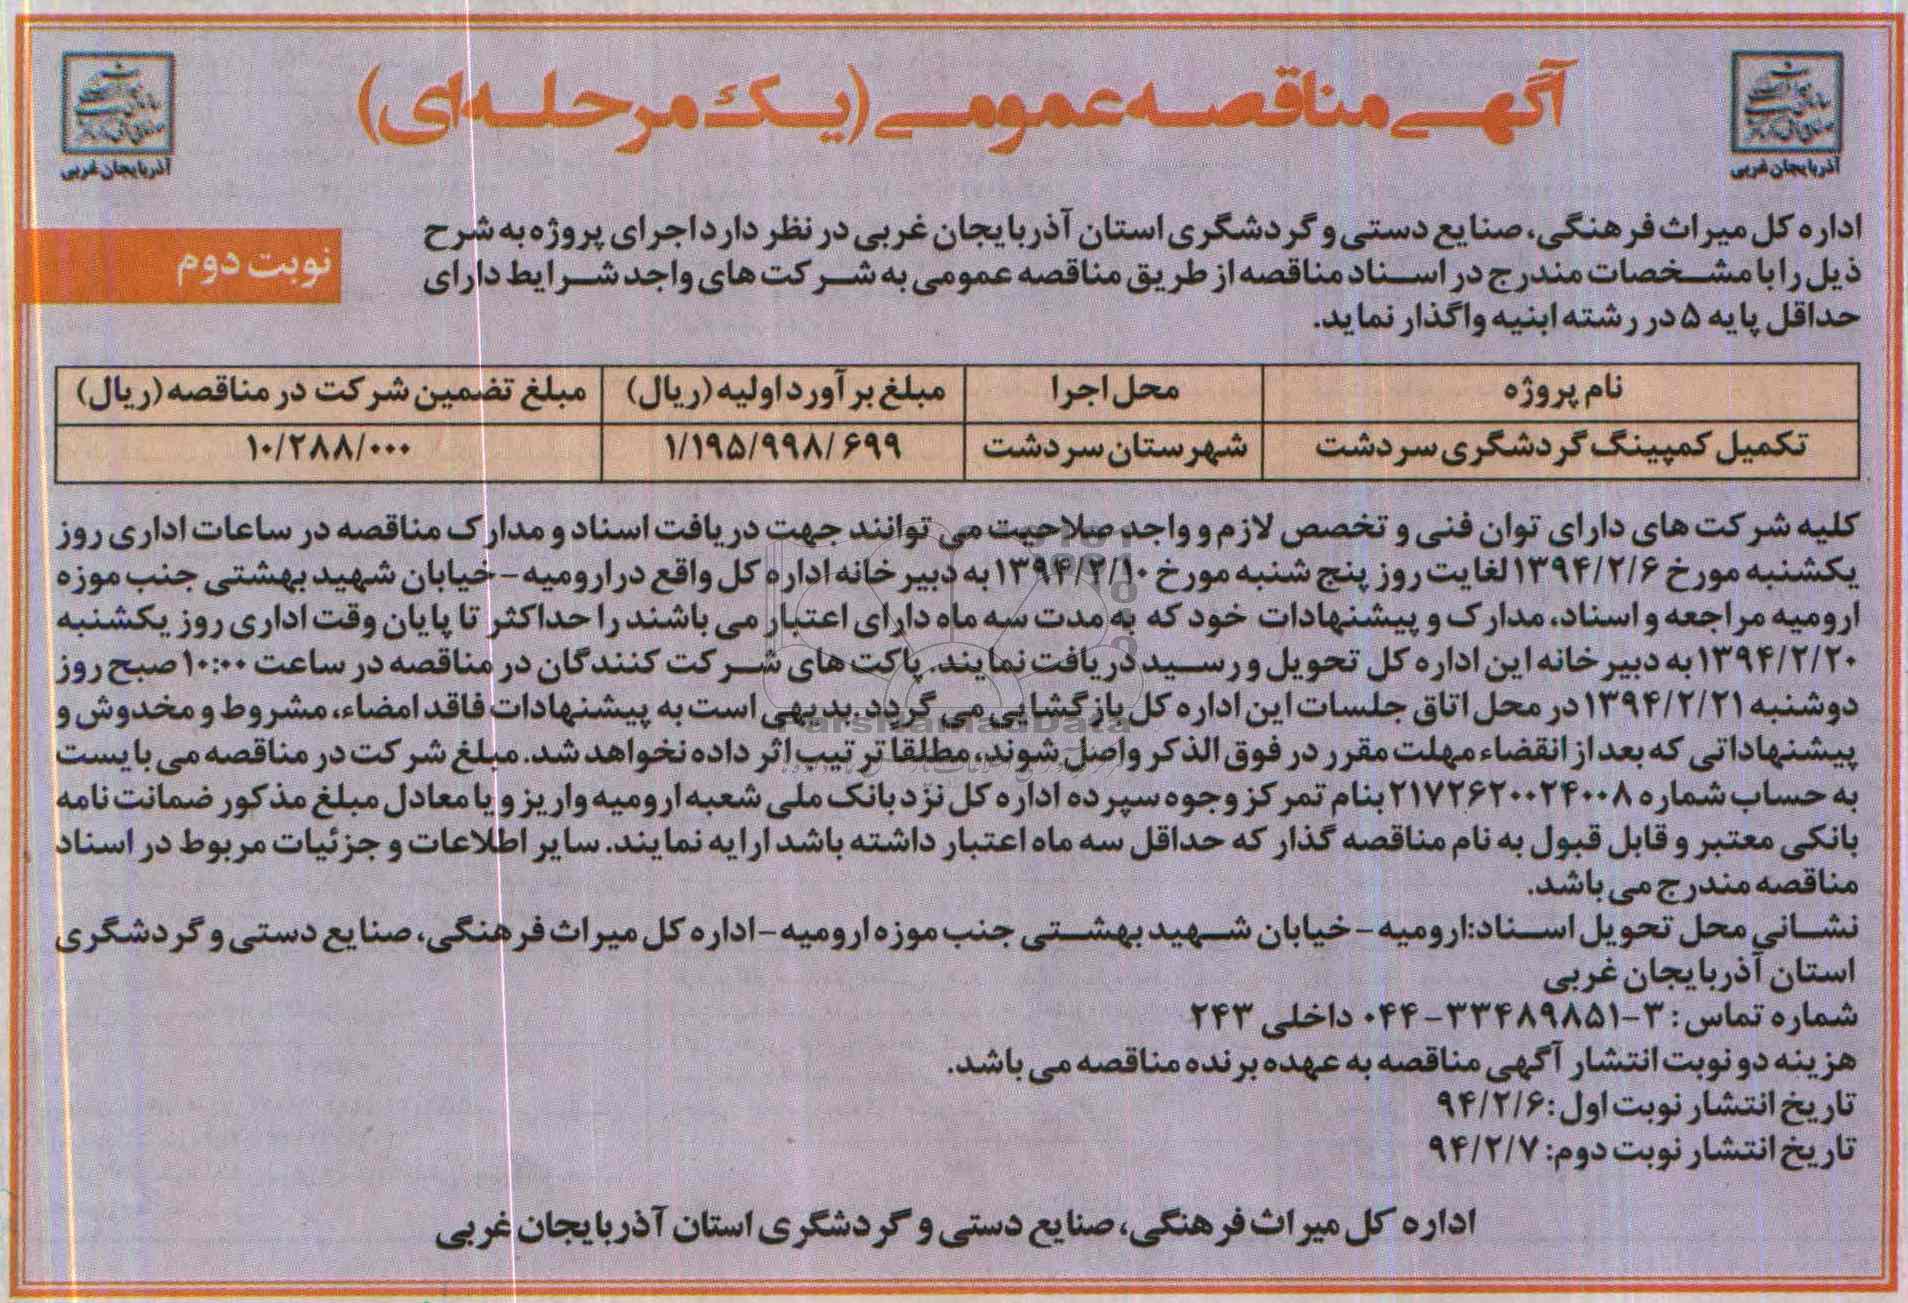 آگهی مناقصه عمومی (یک مرحله‌ای)
آذربایجان غربی
آذربایجان غربی
نوبت دوم
اداره کل میراث فرهنگی، صنایع دستی و گردشگری استان آذربایجان غربی در نظر دارد اجرای پروژه به شرح
ذیل را با مشخصات مندرج در اسناد مناقصه از طریق مناقصه عمومی به شرکت های واجد شرایط دارای
حداقل پایه ۵ در رشته ابنیه واگذار نماید.
نام پروژه | محل اجرا | مبلغ برآورد اولیه (ریال) | مبلغ تضمین شرکت در مناقصه (ریال)
تکمیل کمپینگ گردشگری سردشت | شهرستان سردشت | ۱/۱۹۵/۹۹۸/۶۹۹ | ۱۰/۲۸۸/۰۰۰
کلیه شرکت های دارای توان فنی و تخصص لازم و واجد صلاحیت می توانند جهت دریافت اسناد و مدارک مناقصه در ساعات اداری روز
یکشنبه مورخ ۱۳۹۴/۲/۶ لغایت روز پنج شنبه مورخ ۱۳۹۴/۲/۱۰ به دبیرخانه اداره کل واقع در ارومیه - خیابان شهید بهشتی جنب موزه
ارومیه مراجعه و اسناد، مدارک و پیشنهادات خود که به مدت سه ماه دارای اعتبار می باشند را حداکثر تا پایان وقت اداری روز یکشنبه
۱۳۹۴/۲/۲۰ به دبیرخانه این اداره کل تحویل و رسید دریافت نمایند. پاکت های شرکت کنندگان در مناقصه در ساعت ۱۰:۰۰ صبح روز
دوشنبه ۱۳۹۴/۲/۲۱ در محل اتاق جلسات این اداره کل بازگشایی می گردد. بدیهی است به پیشنهادات فاقد امضاء، مشروط و مخدوش و
پیشنهاداتی که بعد از انقضاء مهلت مقرر در فوق الذکر واصل شوند، مطلقا ترتیب اثر داده نخواهد شد. مبلغ شرکت در مناقصه می بایست
به حساب شماره ۲۱۷۲۶۲۰۰۲۴۰۰۸ بنام تمرکز وجوه سپرده اداره کل نزد بانک ملی شعبه ارومیه واریز و یا معادل مبلغ مذکور ضمانت نامه
بانکی معتبر و قابل قبول به نام مناقصه گذار که حداقل سه ماه اعتبار داشته باشد ارایه نمایند. سایر اطلاعات و جزئیات مربوط در اسناد
مناقصه مندرج می باشد.
نشانی محل تحویل اسناد: ارومیه - خیابان شهید بهشتی جنب موزه ارومیه - اداره کل میراث فرهنگی، صنایع دستی و گردشگری
استان آذربایجان غربی
شماره تماس: ۳-۳۳۴۸۹۸۵۱-۰۴۴ داخلی ۲۴۳
هزینه دو نوبت انتشار آگهی مناقصه به عهده برنده مناقصه می باشد.
تاریخ انتشار نوبت اول: ۹۴/۲/۶
تاریخ انتشار نوبت دوم: ۹۴/۲/۷
اداره کل میراث فرهنگی، صنایع دستی و گردشگری استان آذربایجان غربی
ParsNamadData